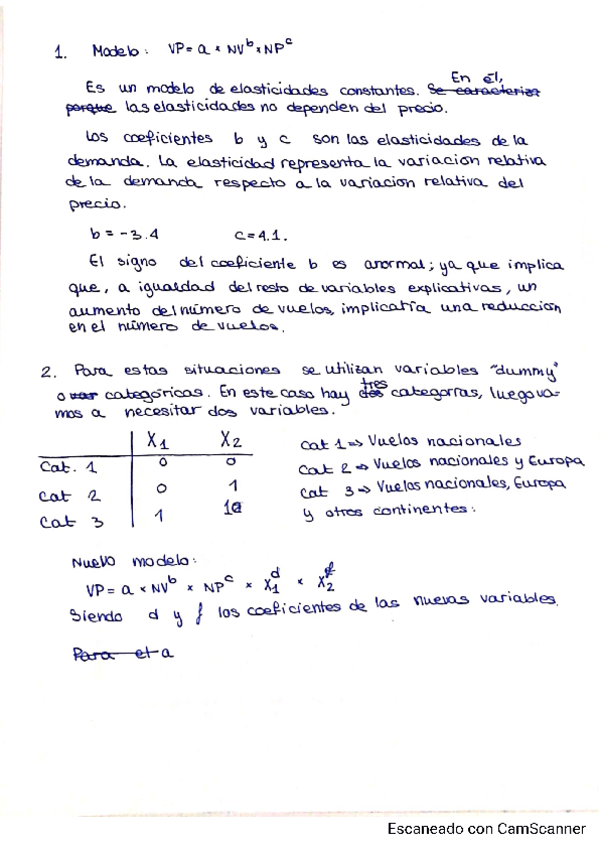 1. Modelo: VP = a * NV^b * NP^c
Es un modelo de elasticidades constantes. Se caracteriza En él,
porque las elasticidades no dependen del precio.
Los coeficientes b y c son las elasticidades de la
demanda. La elasticidad representa la variacion relativa
de la demanda respecto a la variacion relativa del
precio.
b = -3.4 c = 4.1.
El signo del coeficiente b es anormal; ya que implica
que, a igualdad del resto de variables explicativas, un
aumento del número de vuelos, implicaría una reducción
en el número de vuelos.
2. Para estas situaciones se utilizan variables "dummy"
o var categóricas. En este caso hay dos tres categorías, luego va-
mos a necesitar dos variables.
X1 X2
Cat. 1 0 0
Cat 2 0 1
Cat 3 1 10
Cat 1 => Vuelos nacionales
Cat 2 => Vuelos nacionales y Europa
Cat 3 => Vuelos nacionales, Europa
y otros continentes.
Nuevo modelo:
VP = a * NV^b * NP^c * X1^d * X2^f
Siendo d y f los coeficientes de las nuevas variables.
Para el a
Escaneado con CamScanner